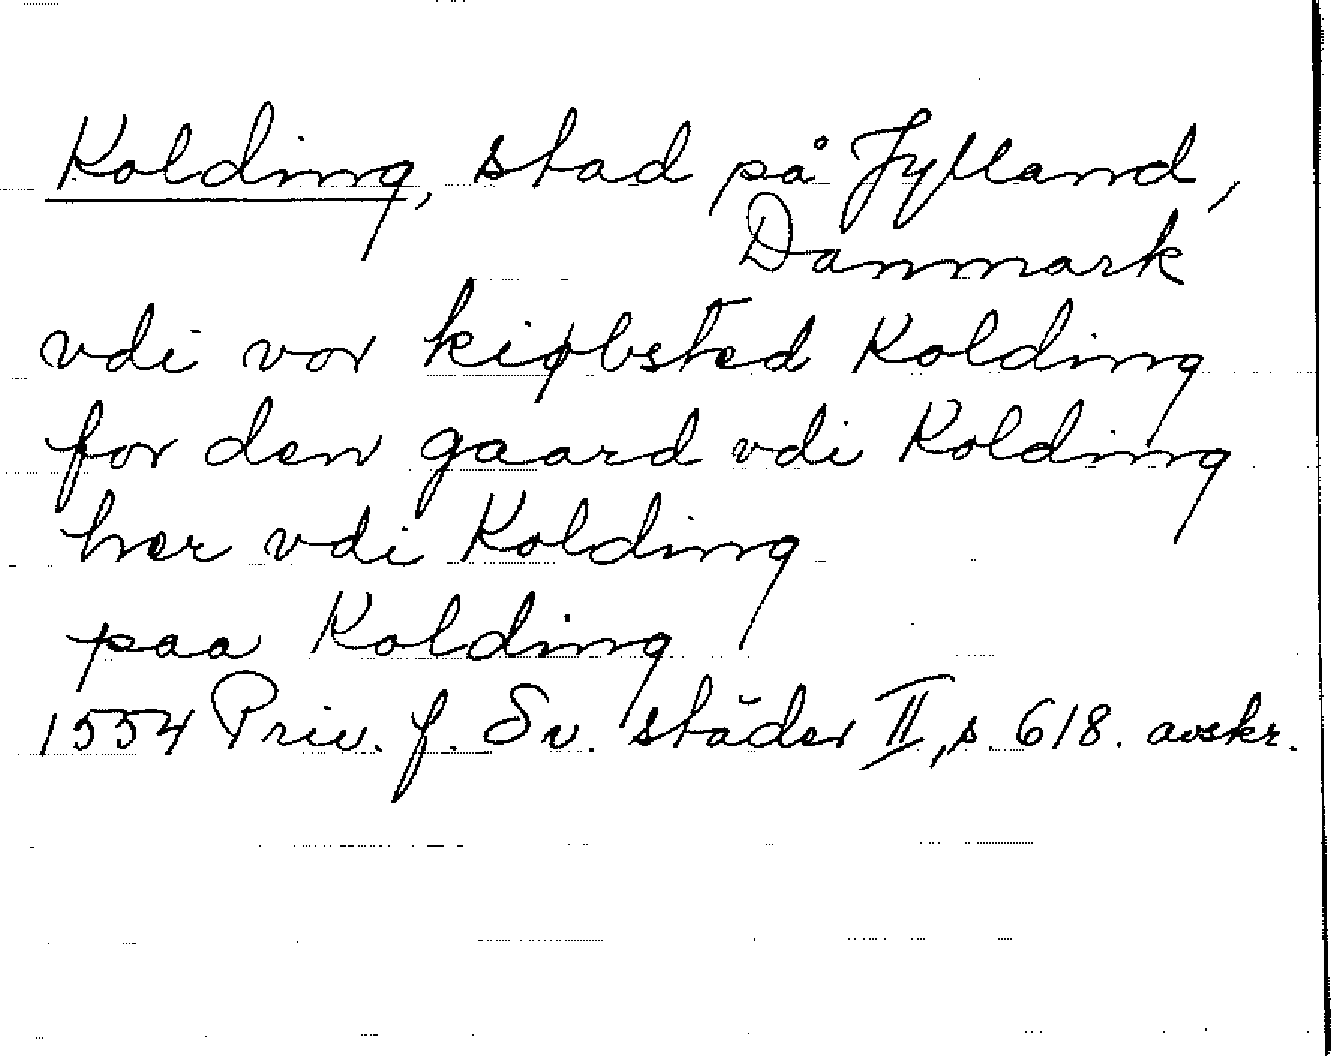 Kolding, stad på Jylland,
Danmark
vdi vor kiøbsted Kolding
for den gaard vdi Kolding
her vdi Kolding
paa Kolding
1554 Priv. f. Sv. städer II, s. 618. avskr.